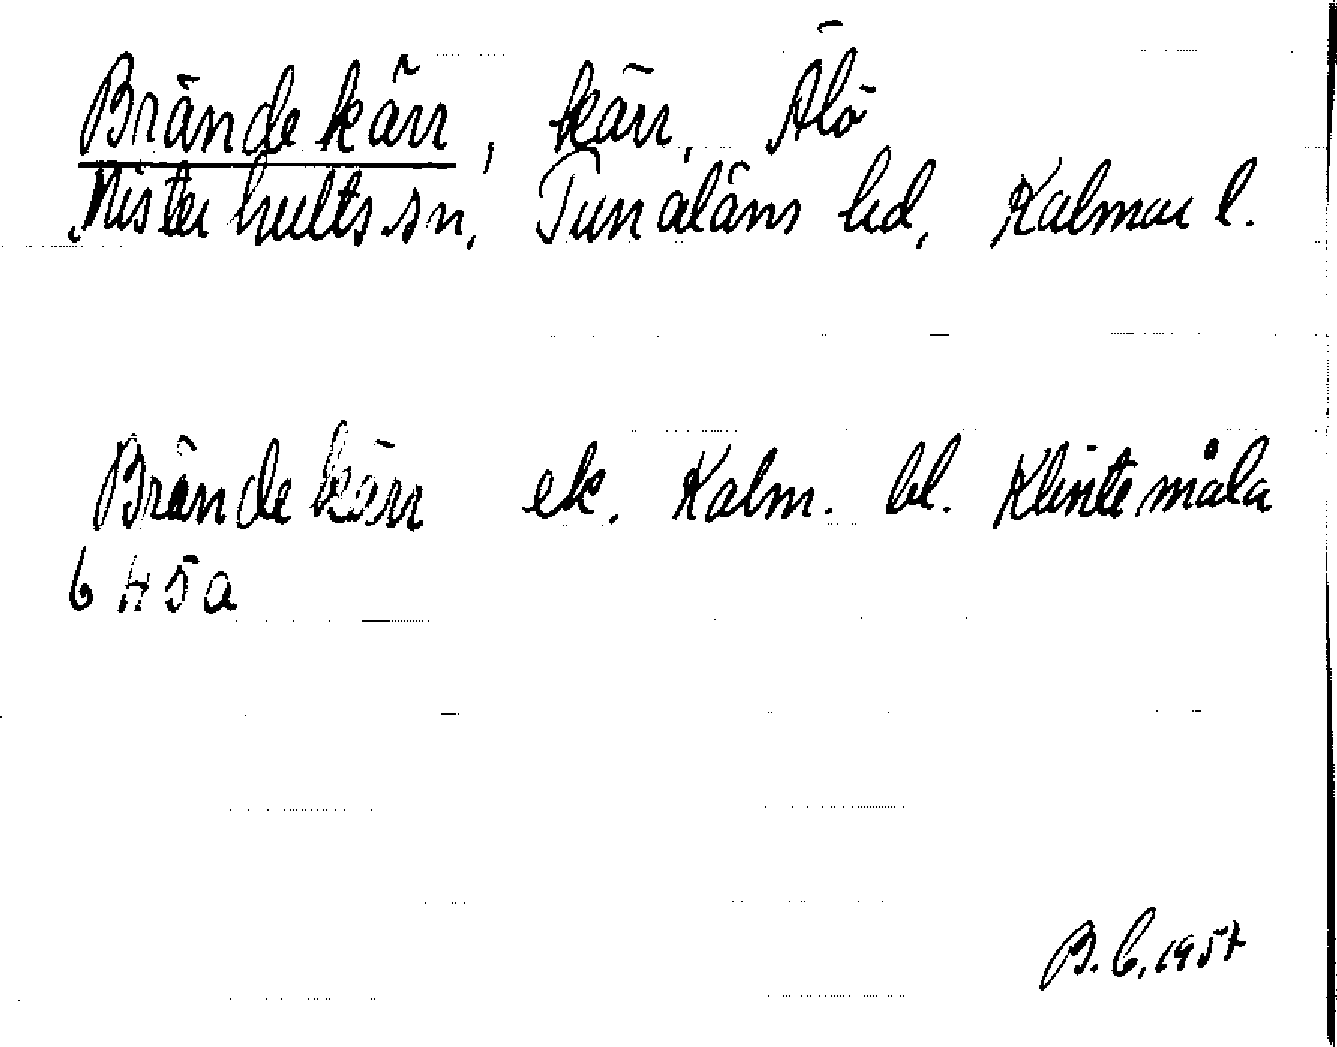 Brändekärr, kärr, Älö
Misterhults sn, Tunaläns hd, Kalmar l.
Brändekärr ek. Kalm. bl. Klintemåla
6 H 5 a
B. C. 1957